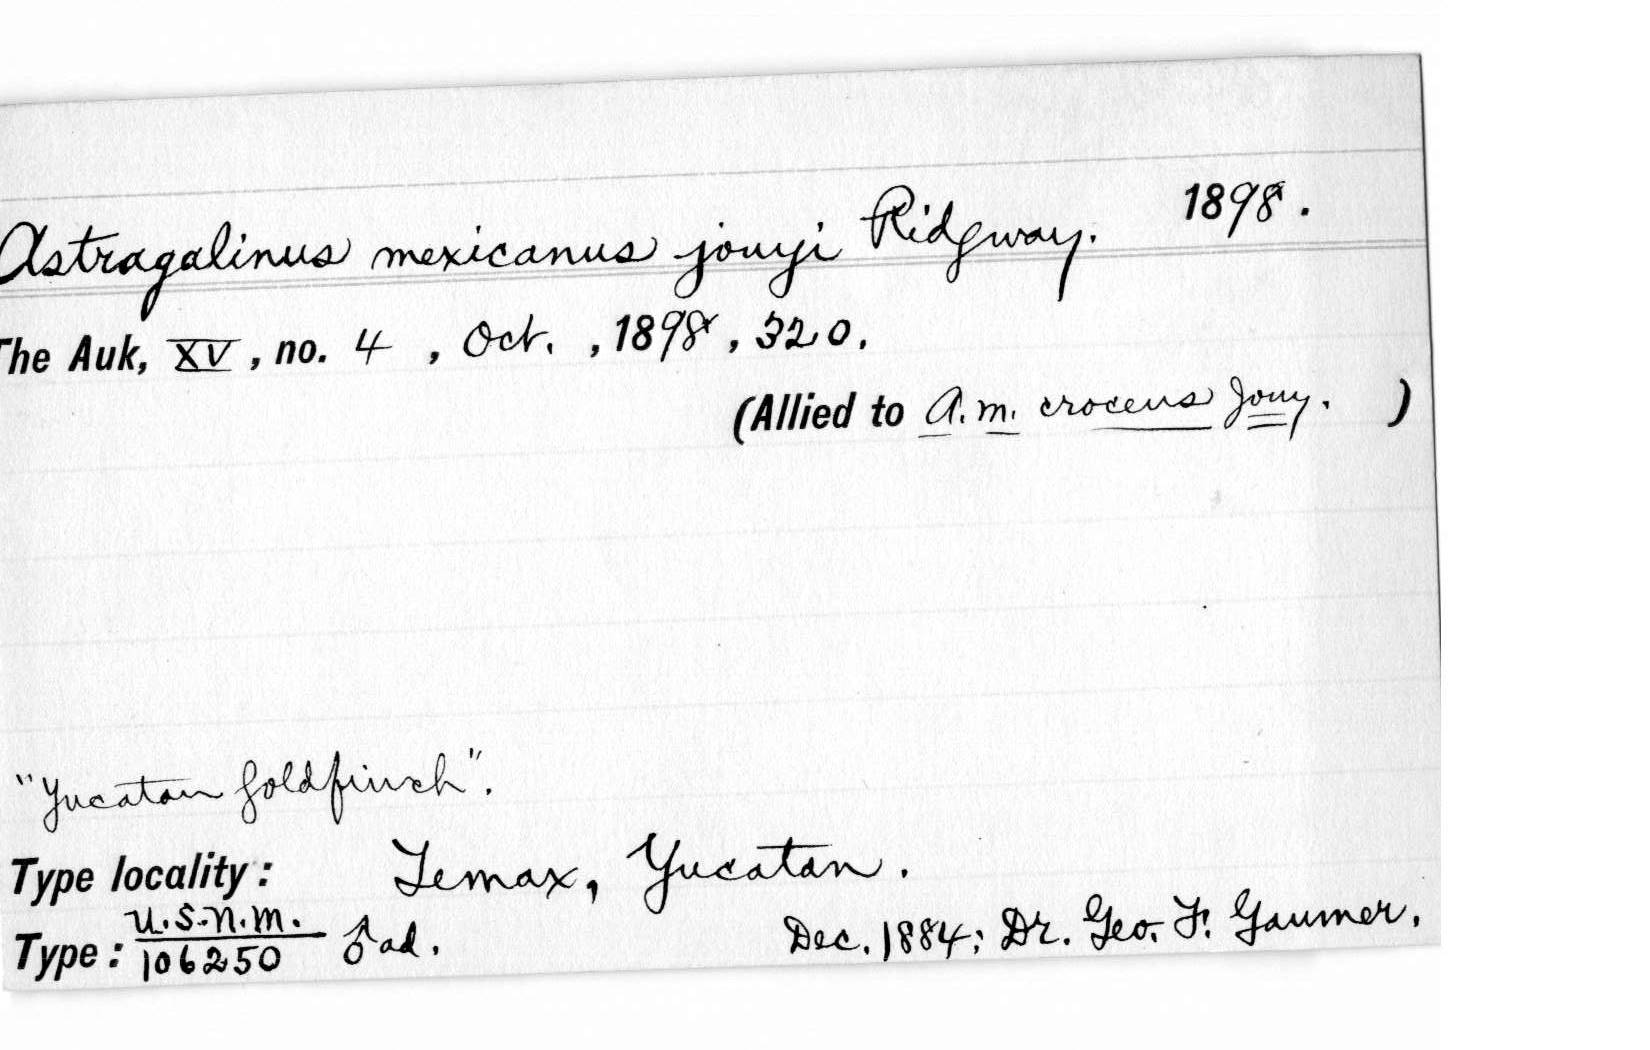 Astragalinus mexicanus jouyi Ridgway. 1898.
The Auk, XV, no. 4, Oct., 1898, 320.
(Allied to A. m. croceus Jouy. )
"Yucatan Goldfinch".
Type locality: Temax, Yucatan.
U.S.N.M.
Type: 106250 ♂ ad. Dec. 1884; Dr. Geo. F. Gaumer.